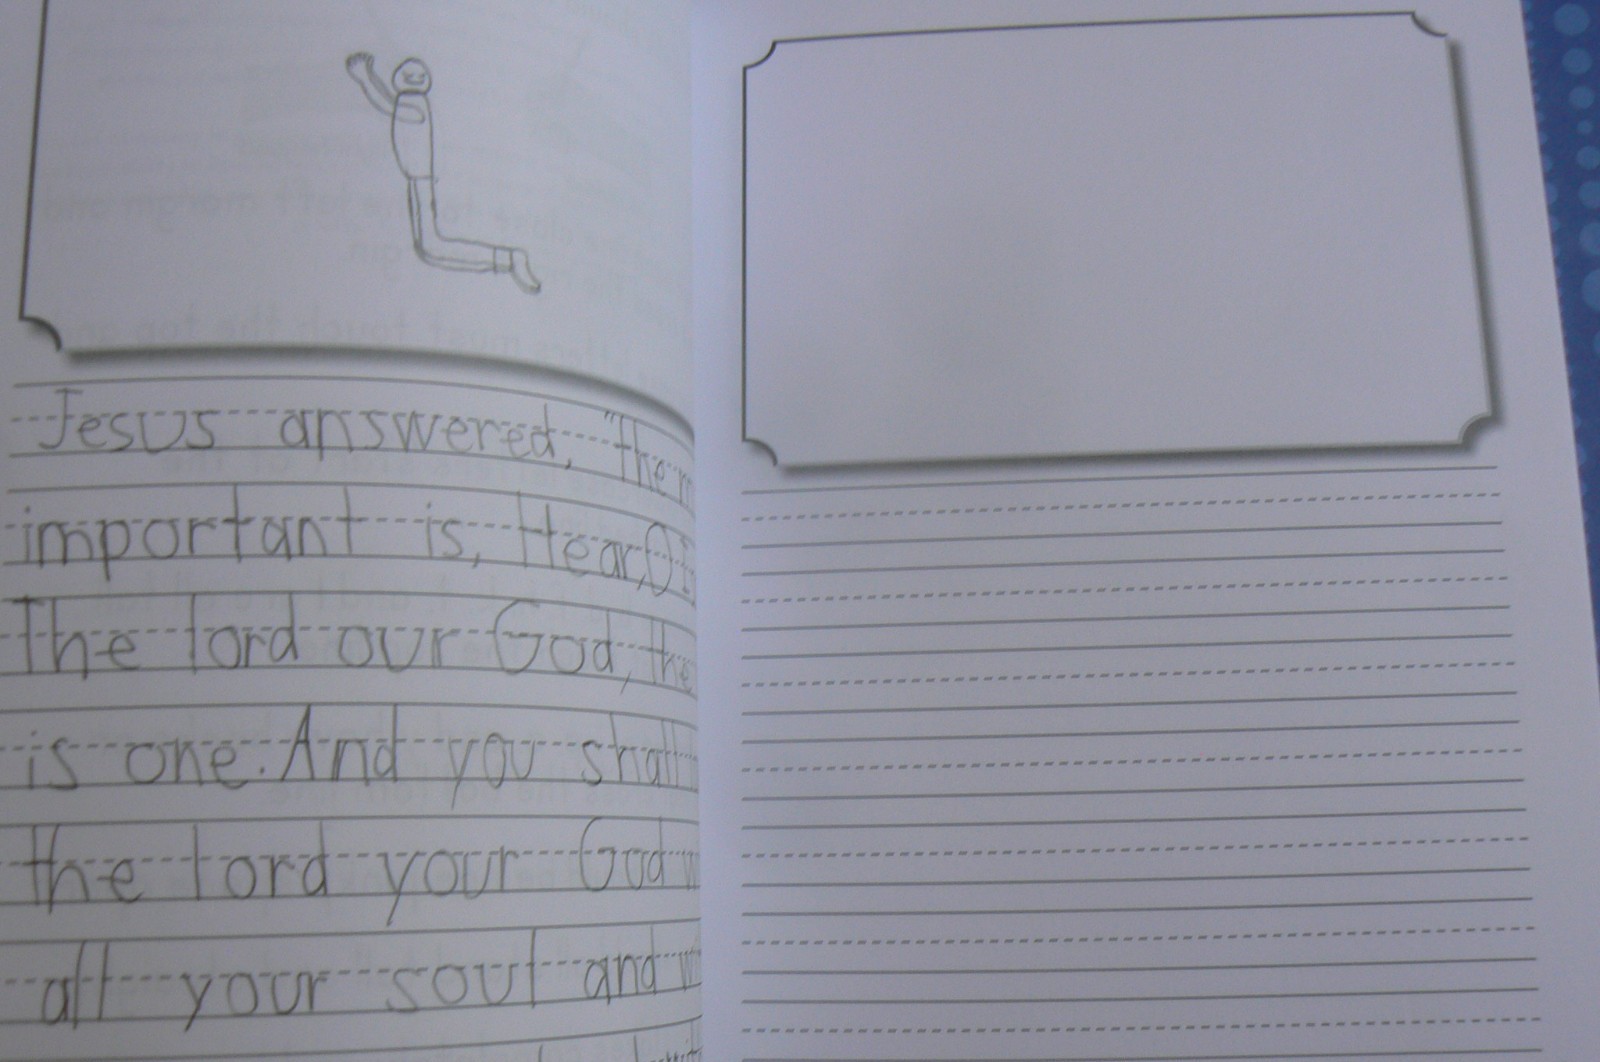 Jesus answered, "The
important is, Hear, O
The lord our God, the
is one. And you shall
the lord your God
all your soul and